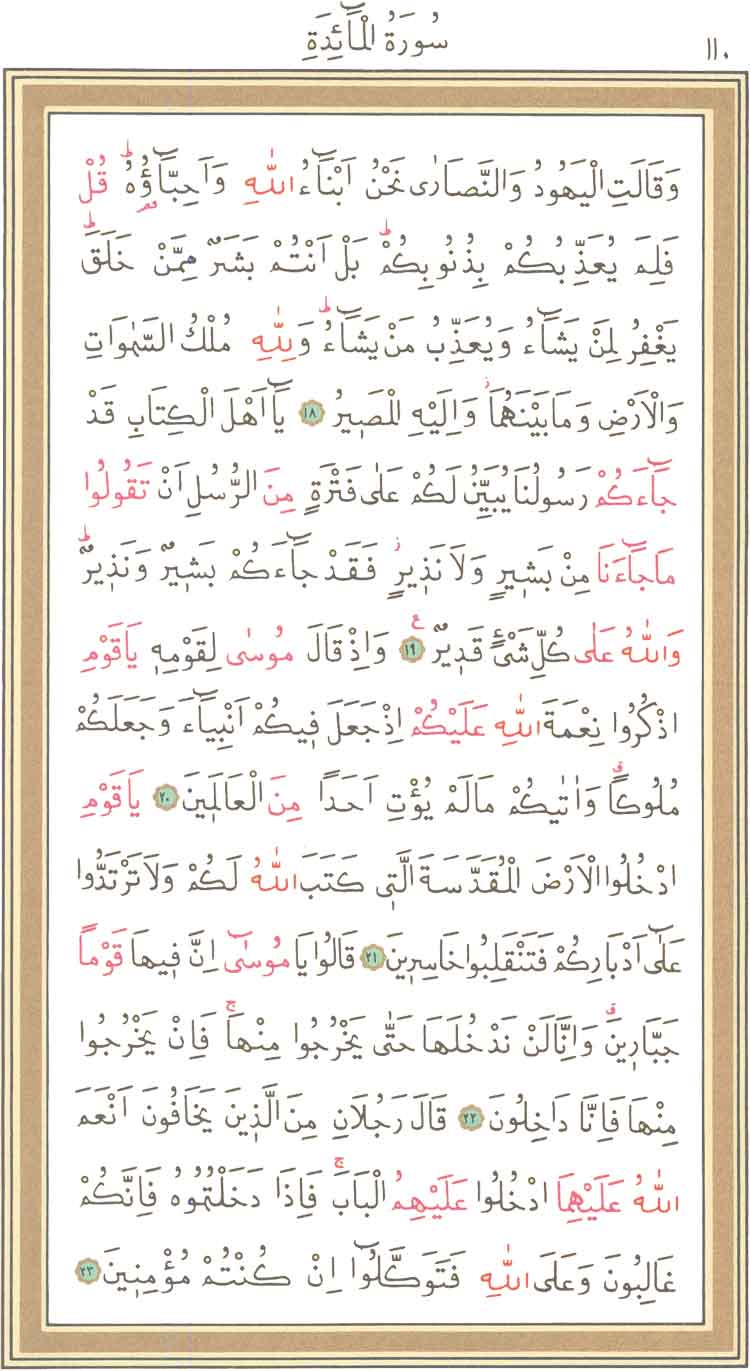 سُورَةُ الْمَٓائِدَةِ
١١٠
وَقَالَتِ الْيَهُودُ وَالنَّصَارٰى نَحْنُ اَبْنَٓاءُ اللّٰهِ وَاَحِبَّٓاؤُ۬هُۜ قُلْ
فَلِمَ يُعَذِّبُكُمْ بِذُنُوبِكُمْۜ بَلْ اَنْتُمْ بَشَرٌ مِمَّنْ خَلَقَۜ
يَغْفِرُ لِمَنْ يَشَٓاءُ وَيُعَذِّبُ مَنْ يَشَٓاءُۜ وَلِلّٰهِ مُلْكُ السَّمٰوَاتِ
وَالْاَرْضِ وَمَا بَيْنَهُمَاۘ وَاِلَيْهِ الْمَصٖيرُ ﴿١٨﴾ يَٓا اَهْلَ الْكِتَابِ قَدْ
جَٓاءَكُمْ رَسُولُنَا يُبَيِّنُ لَكُمْ عَلٰى فَتْرَةٍ مِنَ الرُّسُلِ اَنْ تَقُولُوا
مَا جَٓاءَنَا مِنْ بَشٖيرٍ وَلَا نَذٖيرٍۘ فَقَدْ جَٓاءَكُمْ بَشٖيرٌ وَنَذٖيرٌۜ
وَاللّٰهُ عَلٰى كُلِّ شَیْءٍ قَدٖيرٌ ﴿١٩﴾ ع وَاِذْ قَالَ مُوسٰى لِقَوْمِهٖ يَا قَوْمِ
اذْكُرُوا نِعْمَةَ اللّٰهِ عَلَيْكُمْ اِذْ جَعَلَ فٖيكُمْ اَنْبِيَٓاءَ وَجَعَلَكُمْ
مُلُوكاًۗ وَاٰتٰيكُمْ مَا لَمْ يُؤْتِ اَحَداً مِنَ الْعَالَمٖينَ ﴿٢٠﴾ يَا قَوْمِ
ادْخُلُوا الْاَرْضَ الْمُقَدَّسَةَ الَّتٖى كَتَبَ اللّٰهُ لَكُمْ وَلَا تَرْتَدُّوا
عَلٰٓى اَدْبَارِكُمْ فَتَنْقَلِبُوا خَاسِرٖينَ ﴿٢١﴾ قَالُوا يَا مُوسٰٓى اِنَّ فٖيهَا قَوْماً
جَبَّارٖينَۗ وَاِنَّا لَنْ نَدْخُلَهَا حَتّٰى يَخْرُجُوا مِنْهَاۚ فَاِنْ يَخْرُجُوا
مِنْهَا فَاِنَّا دَاخِلُونَ ﴿٢٢﴾ قَالَ رَجُلَانِ مِنَ الَّذٖينَ يَخَافُونَ اَنْعَمَ
اللّٰهُ عَلَيْهِمَا ادْخُلُوا عَلَيْهِمُ الْبَابَۚ فَاِذَا دَخَلْتُمُوهُ فَاِنَّكُمْ
غَالِبُونَ وَعَلَى اللّٰهِ فَتَوَكَّلُٓوا اِنْ كُنْتُمْ مُؤْمِنٖينَ ﴿٢٣﴾